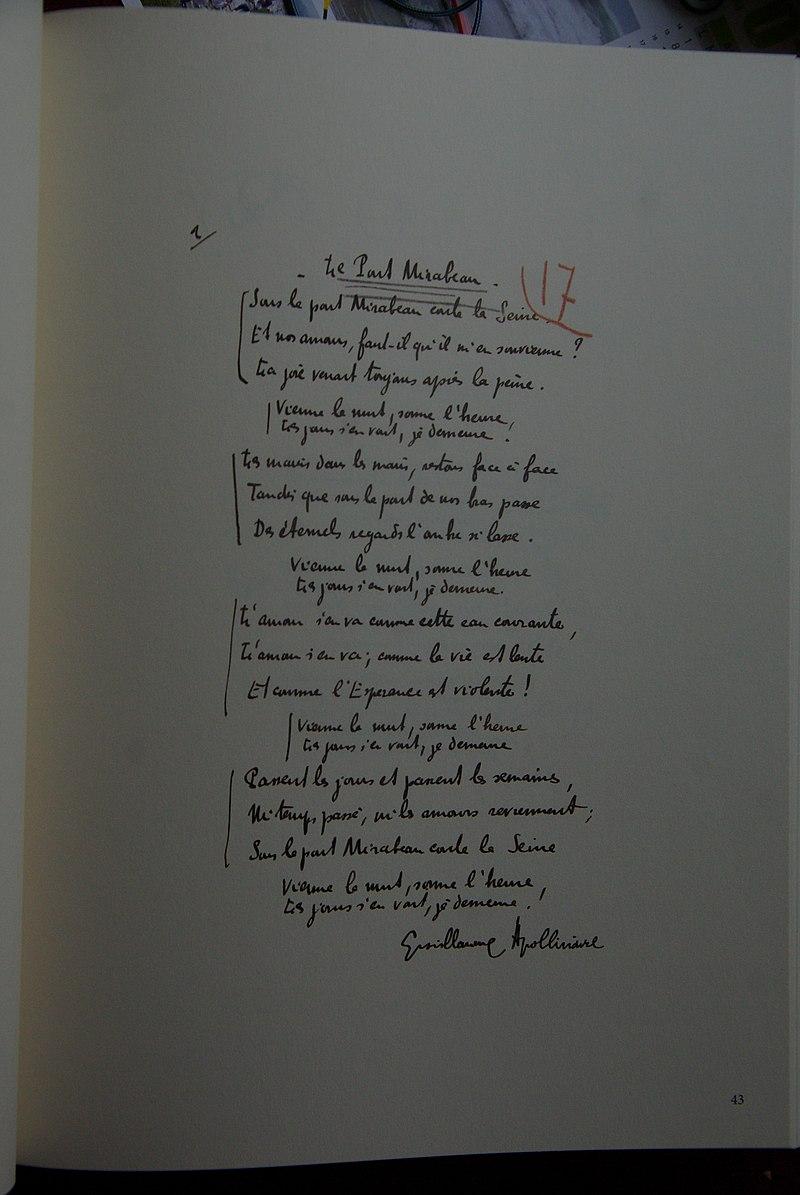 1/
- Le Pont Mirabeau -
17
Sous le pont Mirabeau coule la Seine.
Et nos amours, faut-il qu'il m'en souvienne ?
La joie venait toujours après la peine.
Vienne la nuit, sonne l'heure,
Les jours s'en vont, je demeure.
Les mains dans les mains, restons face à face
Tandis que sous le pont de nos bras passe
Des éternels regards l'onde si lasse.
Vienne la nuit, sonne l'heure
Les jours s'en vont, je demeure.
L'amour s'en va comme cette eau courante,
L'amour s'en va; comme la vie est lente
Et comme l'Espérance est violente !
Vienne la nuit, sonne l'heure
Les jours s'en vont, je demeure
Passent les jours et passent les semaines,
Ni temps passé, ni les amours reviennent;
Sous le pont Mirabeau coule la Seine
Vienne la nuit, sonne l'heure,
Les jours s'en vont, je demeure.!
Guillaume Apollinaire
43